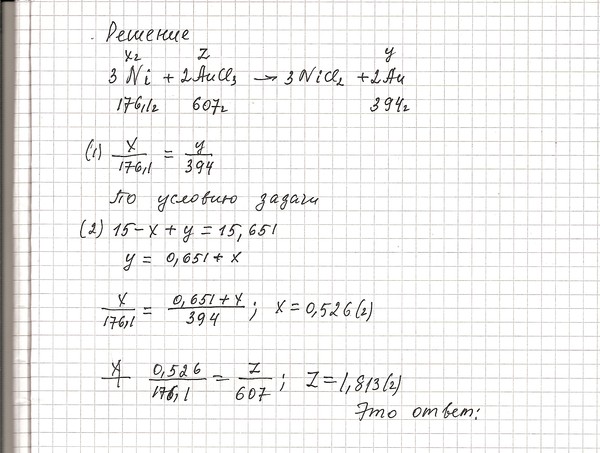 . Решение
xг z y
3Ni + 2AuCl₃ → 3NiCl₂ + 2Au
176,1г 607г 394г
(1) x/176,1 = y/394
По условию задачи
(2) 15-x+y=15,651
y = 0,651+x
x/176,1 = 0,651+x/394; x=0,526(г)
x 0,526/176,1 = z/607; z=1,813(г)
Это ответ: